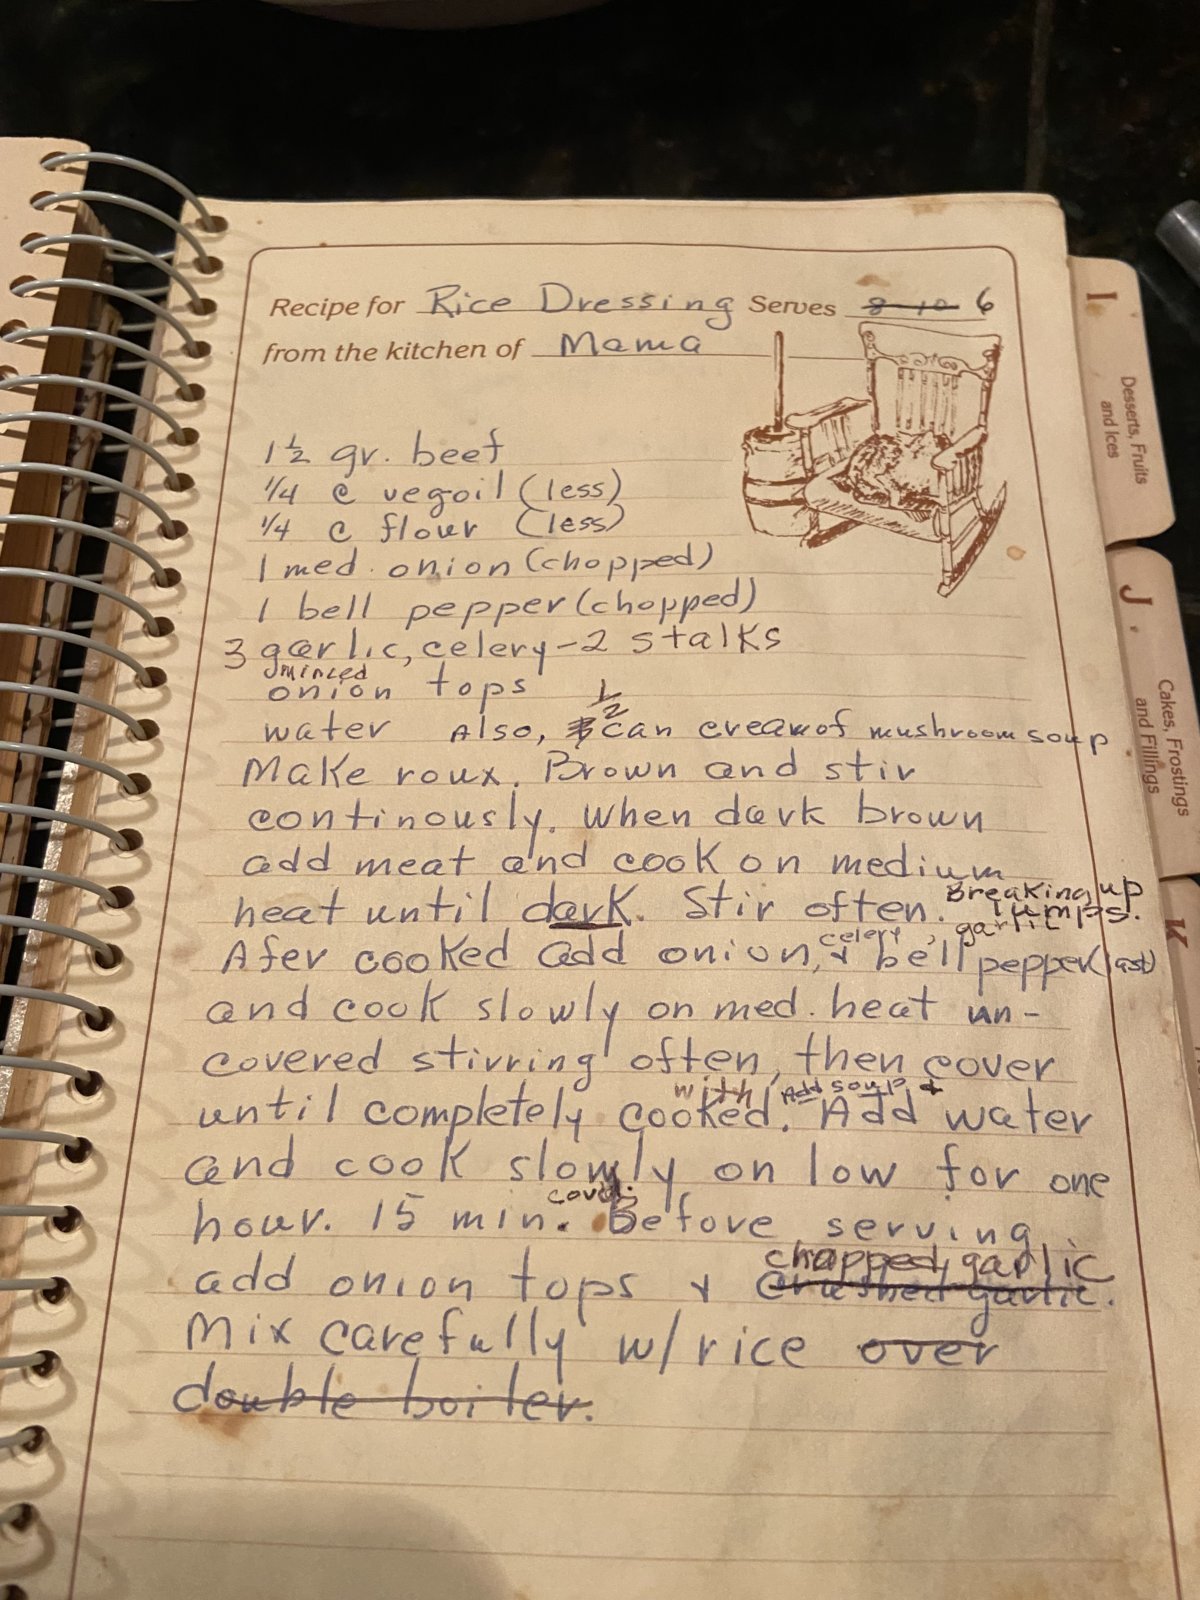 Recipe for Rice Dressing Serves 8-10 6
from the kitchen of Mama
1 1/2 gr. beef
1/4 c vegoil (less)
1/4 c flour (less)
1 med. onion (chopped)
1 bell pepper (chopped)
3 garlic, celery - 2 stalks
minced
onion tops
1/2
water Also, can cream of mushroom soup
Make roux. Brown and stir
continously. When dark brown
add meat and cook on medium
heat until dark. Stir often. Breaking up lumps.
celery, garlic
Afer cooked add onion, & bell pepper (last)
and cook slowly on med. heat un-
covered stirring often, then cover
with Add soup &
until completely cooked. Add water
and cook slowly on low for one
cover
hour. 15 min. Before serving
chopped garlic
add onion tops & crushed garlic.
Mix carefully w/rice over
double boiler.
I.
Desserts, Fruits
and Ices
J.
Cakes, Frostings
and Fillings
K